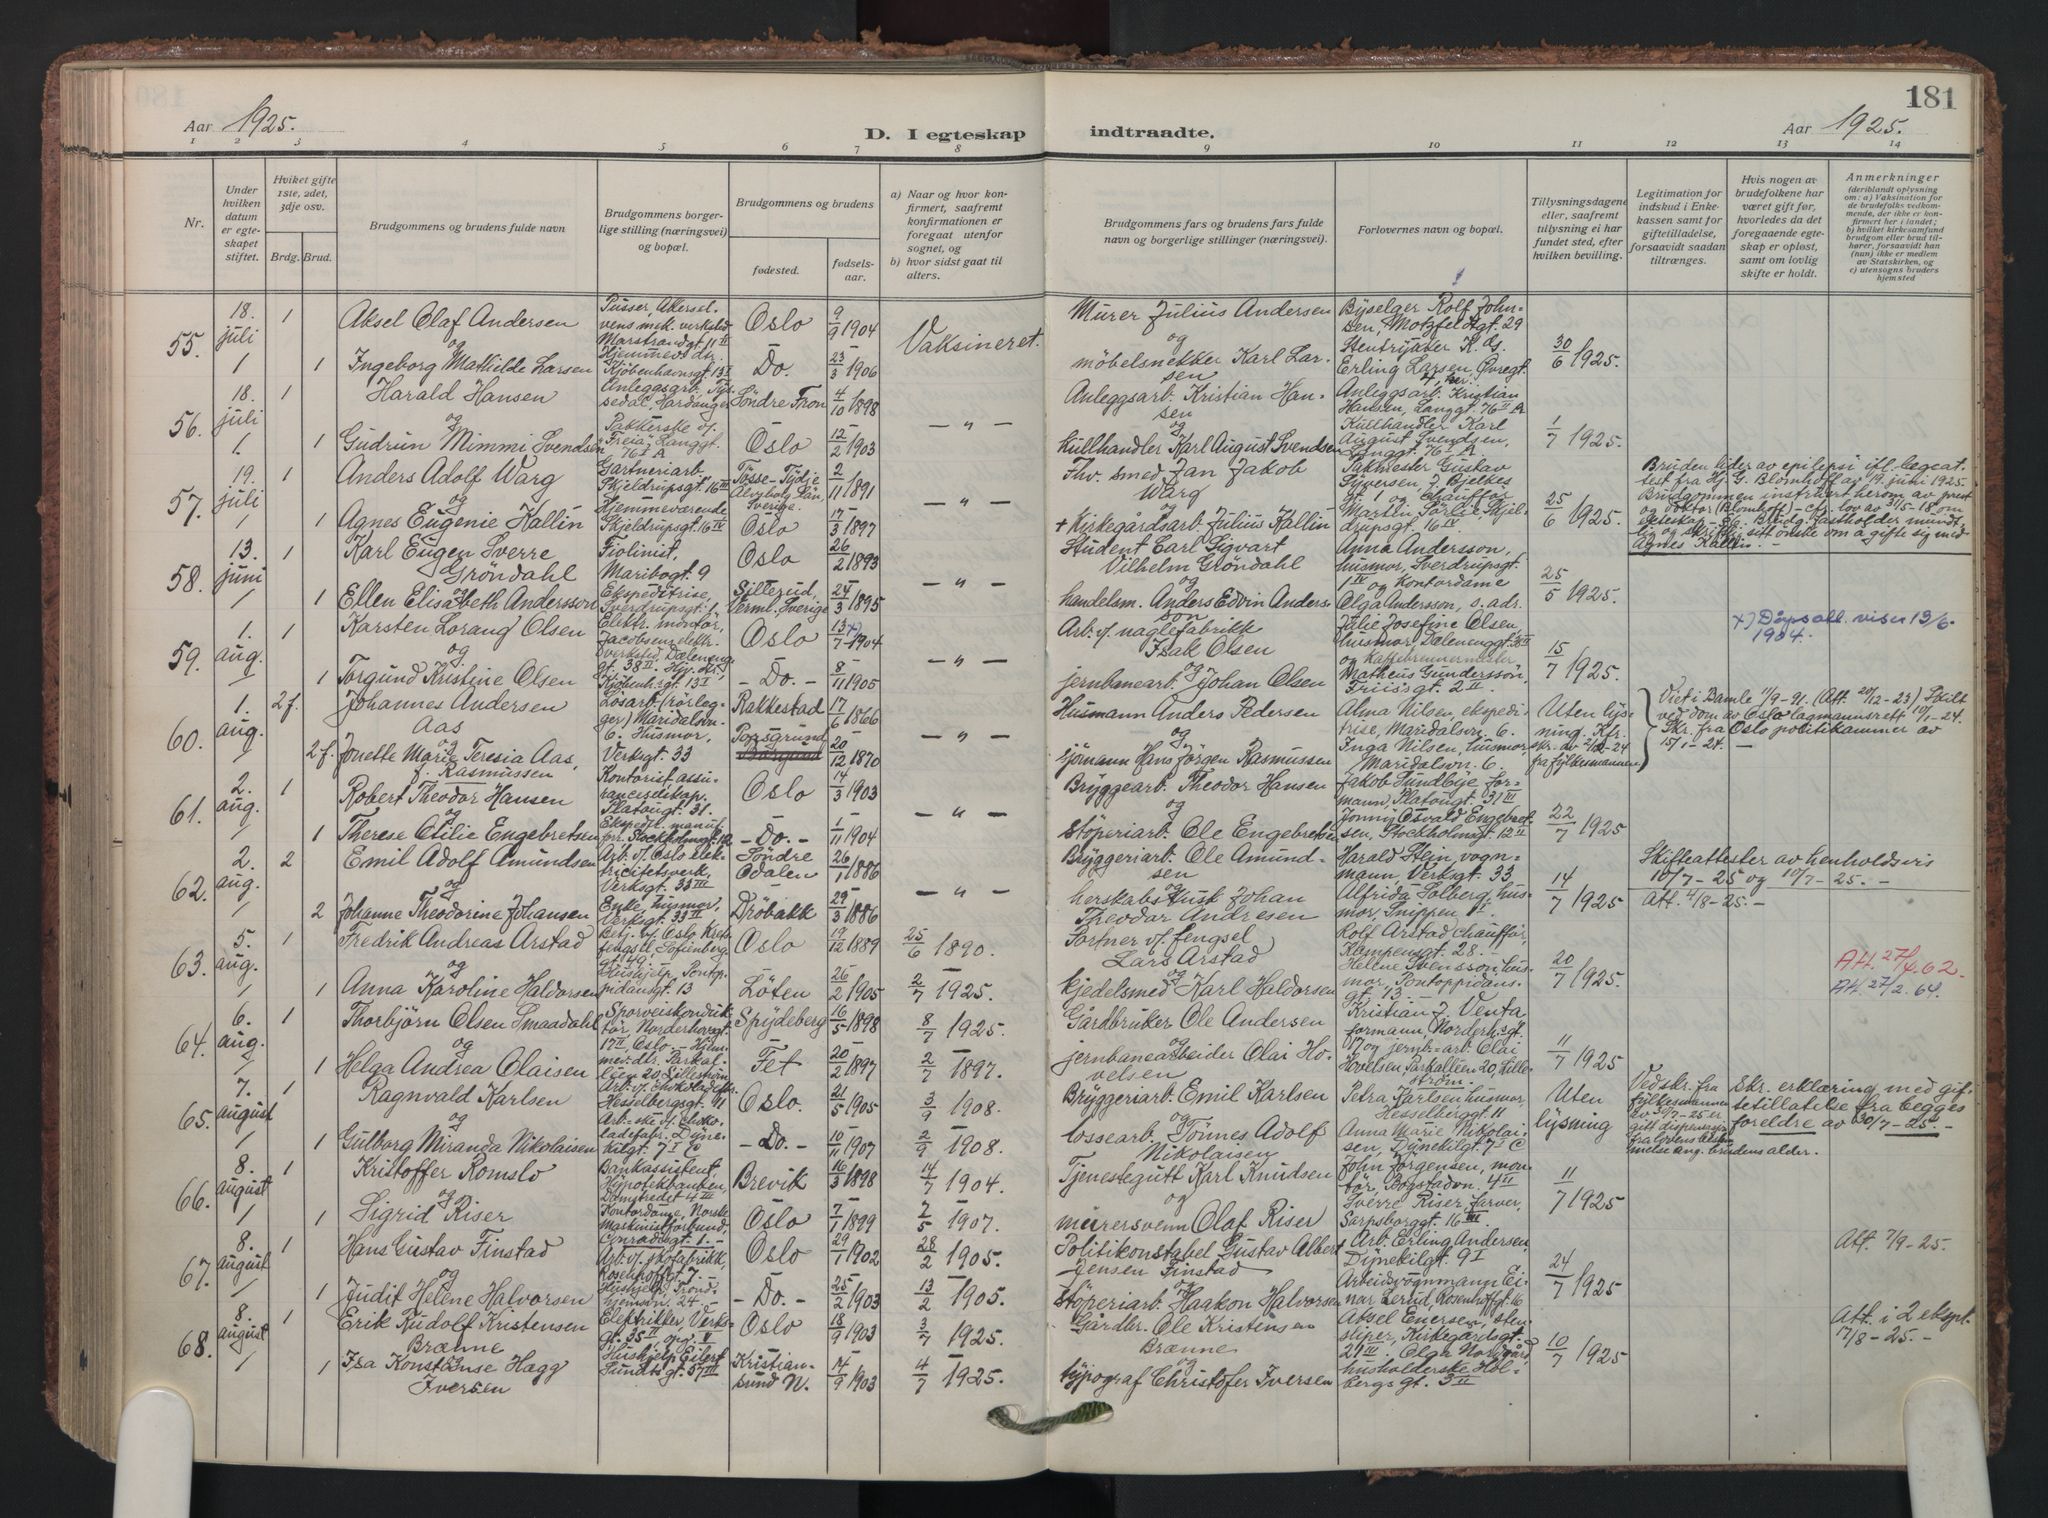 181
Aar 1925.
D. I egteskap indtraadte.
Aar 1925.
1 2 3 4 5 6 7 8 9 10 11 12 13 14
Nr.
Under hvilken datum er egteskapet stiftet.
Hviket gifte 1ste, 2det, 3dje osv.
Brdg. Brud.
Brudgommens og brudens fulde navn
Brudgommens borgerlige stilling (næringsvei) og bopæl.
Brudgommens og brudens
fødested.
fødselsaar.
a) Naar og hvor konfirmert, saafremt konfirmationen er foregaat utenfor sognet, og
b) hvor sidst gaat til alters.
Brudgommens fars og brudens fars fulde navn og borgerlige stillinger (næringsvei).
Forlovernes navn og bopæl.
Tillysningsdagene eller, saafremt tillysning ei har fundet sted, efter hvilken bevilling.
Legitimation for indskud i Enkekassen samt for giftetilladelse, forsaavidt saadan tiltrænges.
Hvis nogen av brudefolkene har været gift før, hvorledes da det foregaaende egteskap er opløst, samt om lovlig skifte er holdt.
Anmerkninger
(deriblandt oplysning om: a) Vaksination for de brudefolks vedkommende, der ikke er konfirmert her i landet; b) hvilket kirkesamfund brudgom eller brud tilhører, forsaavidt han (hun) ikke er medlem av Statskirken, og c) utensogns bruders hjemsted
55. 18. juli 1 Aksel Olaf Andersen Pusser, Akerselvens mek. verksted Marstrandgt 11 II Oslo 9/9 1904 Vaksineret. Murer Julius Andersen Byselger Rolf Johnsen, Motzfeldtsgt. 29
og
1 Ingeborg Mathilde Larsen Hjemmev. dtr. Kjøbenhavnsgt. 13 I Do. 23/3 1906 og möbelsnekker Karl Larsen Erling Larsen, Øvregt. 4, her. 30/6 1925.
56. 18. juli 1 Harald Hansen Anleggsarb. Tyssedal, Hardanger Söndre Fron 4/10 1898 — " — Anleggsarb. Kristian Hansen Anleggsarb. Kristian Hansen, Langgt. 76 II A
og
1 Gudrun Mimmi Svendsen Pakkerske v. "Freia", Langgt. 76 I A Oslo 12/2 1903 og Kullhandler Karl August Svendsen Kullhandler Karl August Svendsen, Langgt. 76 I A 1/7 1925.
57. 19. juli 1 Anders Adolf Warg Gartneriarb. Skjeldrupsgt. 16 III Tösse-Tydje Alvsborg Län, Sverige. 2/11 1891 — " — Fhv. smed Jan Jakob Warg Pakmester Gustav Syversen, J. Bjelkes gt. 1 og Chauffør
og
1 Agnes Eugenie Kallin Hjemmeværende Skjeldrupsgt. 16 IV Oslo 17/3 1897 og + Kirkegårdsarb. Julius Kallin Martin Sørlie, Skjeldrupsgt. 16 IV 25/6 1925.
Bruden lider av epilepsi ifl. lægeattest fra Hj. G. Blomhoff av 19. juni 1925. Brudgommen instruert herom av prest og doktor (Blomhoff) - cfr. lov av 31/5-18 om egteskap - Brudg. fastholder mundtlig og skriftlig sitt önske om å gifte sig med Agnes Kallin. -
58. 13. juni 1 Karl Eugen Sverre Gröndahl Fiolinist, Maribogt. 9 Oslo 26/2 1893 — " — Student Carl Sigvart Vilhelm Gröndahl Anna Andersson, husmor, Sverdrupsgt. 1 IV og Kontordame
og
1 Ellen Elisabeth Andersson Ekspeditrise, Sverdrupsgt. 1. Sillerud, Verml., Sverige 24/3 1895 og handelsm. Anders Edvin Andersson Olga Andersson, s. adr. 25/5 1925.
59. 1. aug. 1 Karsten Lorang Olsen Elektr. montör, Jacobsens elektr. verksted, Dælenenggt. 38 II. Oslo 13/7 x) 1904 — " — Arb. v/ naglefabrikk Isak Olsen Julie Josefine Olsen, husmor, Dælenenggt. 38 II
og
1 Torgund Kristine Olsen Hjv. dtr., Kjöbenh.sgt. 13 I — Do. — 8/11 1905 og jernbanearb. Johan Olsen og Kaffebrennermester Matheus Gunderssön, Friisgt. 2 II 15/7 1925.
x) Dåpsatt. viser 13/6. 1904.
60. 1. aug. 2 f. Johannes Andersen Aas Lösarb. (rörlegger) Maridalsvn. 6. Rakkestad 17/6 1866 — " — Husmann Anders Pedersen Alma Nilsen, ekspeditrise, Maridalsvn. 6.
og
2 f. Jonette Marie Teresia Aas, f. Rasmussen Husmor, Verksgt. 33 Porsgrund 20/12 1870 og sjömann Hans Jörgen Rasmussen Inga Nilsen, husmor Maridalsvn. 6. Uten lysning. Kfr. skr. av 2/12-24 fra fylkesmannen
Viet i Bamle 11/9-91. (Att. 20/12-23) Skilt ved dom av Oslo lagmannsrett 10/1-24. Skr. fra Oslo politikammer av 15/1-24. —
61. 2. aug. 1 Robert Theodor Hansen Kontorist assuranceselskap. Platousgt. 31. Oslo 14/3 1903 — " — Bryggearb. Theodor Hansen Jakob Sundbye, formann, Platousgt. 31 III
og
1 Therese Otilie Engebretsen Ekspedtr. manufforr. Stockholmsgt. 12 — Do. — 1/11 1904 og stöperiarb. Ole Engebretsen Jonny Osvald Engebretsen, Stockholmsgt. 12 II 22/7 1925
62. 2. aug. 2 Emil Adolf Amundsen Arb. v/ Oslo elektricitetsverk, Verksgt. 33 III Söndre Odalen 26/1 1886 — " — Bryggeriarb. Ole Amundsen Harald Stein, vognmann, Verksgt. 33
og
2 Johanne Theodorine Johansen Enke, husmor, Verksgt. 33 II Dröbakk 29/3 1886 herskapskusk Johan Theodor Andresen Alfrida Solberg, husmor, Snippen 1 I. 14/7 1925
Skifteattester av henholdsvis 10/7-25 og 10/7-25. —
Att. 4/8-25. —
63. 5. aug. 1 Fredrik Andreas Arstad Betj. v/ Oslo Kretsfengsel, Sofienberggt. 49. Oslo 19/12 1889 25/6 1890. Portner v/ fengsel Lars Arstad Rolf Arstad chauffør, Kampensgt. 28. —
og
1 Anna Karoline Haldorsen Hushjelp, Pontoppidansgt. 13 Löten 26/2 1905 2/7 1925. og kjedelsmed Karl Haldorsen Helene Svensson husmor, Pontoppidansgt. 13 — 20/7 1925.
Att. 27/4.62.
Att. 27/2.64.
64. 6. aug. 1 Thorbjörn Olsen Smaadahl Sporveiskonduktör, Norderhovsgt. 17 II, Oslo. — Spydeberg 16/5 1898 8/7 1925. Gårdbruker Ole Andersen Kristian J. Venta formann, Norderh.sgt. 17 og jernb=arb. Olai
og
1 Helga Andrea Olaisen Hjemmev. dtr. Parkalléen 20, Lilleström Fet 20/2 1897 2/7 1897. og jernbanearbeider Olai Hovelsen Hovelsen, Parkalléen 20, Lilleström. 11/7 1925
65. 7. august 1 Ragnvald Karlsen Arb. v/ chokoladefbr. Hesselbergsgt. 11 Oslo. 21/5 1905 3/9 1908. Bryggeriarb. Emil Karlsen Petra Karlsen husmor, Hesselberggt. 11
og
1 Gulborg Miranda Nikolaisen Arb.-ske v/ chokoladefabr. Dynekilgt. 7 I C — Do. — 10/11 1907 2/9 1908. og lossearb. Tönnes Adolf Nikolaisen Anna Marie Nikolaisen, Dynekilgt. 7 I C Uten lysning
Ved skr. fra fylkesmannen av 30/7-25 er gitt dispensasjon fra lovens bestemmelse ang. brudens alder.
Skr. erklæring med giftetillatelse fra begges foreldre av 30/7-25 —
66. 8. august 1 Kristoffer Romslo Bankassistent Hypotekbanken, Damstredet 4 III Brevik 16/3 1898 14/7 1904. Tjenestegutt Karl Knudsen John Jörgensen, montör Bogstadvn. 4 II
og
1 Sigrid Riser Kontordame, Norske Maskinistforbund, Conradisgt. 1. — Oslo 7/1 1899 7/5 1907. og murersvenn Olaf Riser Sverre Riser, farver, Sarpsborggt. 16 III 11/7 1925
67. 8. august 1 Hans Gustav Finstad Arb. v/ skofabrikk, Rosenhoffgt. 7. Oslo 29/1 1902 28/2 1905. Politikonstabel Gustav Albert Jensen Finstad Arb. Erling Andersen, Dynekilgt. 9 I
og
1 Judit Helene Halvorsen Hushjelp, Trondhjemsvn. 24 — — Do. — 25/2 1903 13/2 1905. og stöperiarb. Haakon Halvorsen Arbeidsvognmann Einar Lerud, Rosenhoffgt. 16 24/7 1925
Att. 7/9-25.
68. 8. august 1 Erik Rudolf Kristensen Brænne Elektriker, Verksgt. 35 II opg. V Oslo 18/9 1903 3/7 1925. Gårdbr. Ole Kristensen Brænne Aksel Enersen, stensliper, Kirkegårdsgt. 21 III.
og
1 Isa Konstanse Hagg Iversen Hushjelp Eilert Sundtsgt. 57 III Kristiansund N. 14/9 1903 4/7 1925. og typograf Christofer Iversen Olga Nordgård, husholderske Holbergsgt. 3 II 10/7 1925
Att. i 2 ekspl. 17/8-25. —